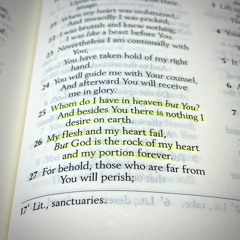 21 When my heart was embittered,
And inwardly I was pricked,
22 I was
like a beast before You.
23 Nevertheless I am continually with
You;
You have taken hold of my right
hand.
24 You will guide me with Your counsel,
And afterward You will receive
me in glory.
25 Whom do I have in heaven but You?
And besides You there is nothing I
desire on earth.
26 My flesh and my heart fail,
But God is the rock of my heart
and my portion forever.
27 For behold, those who are far from
You will perish;
17¹ Lit., sanctuaries.